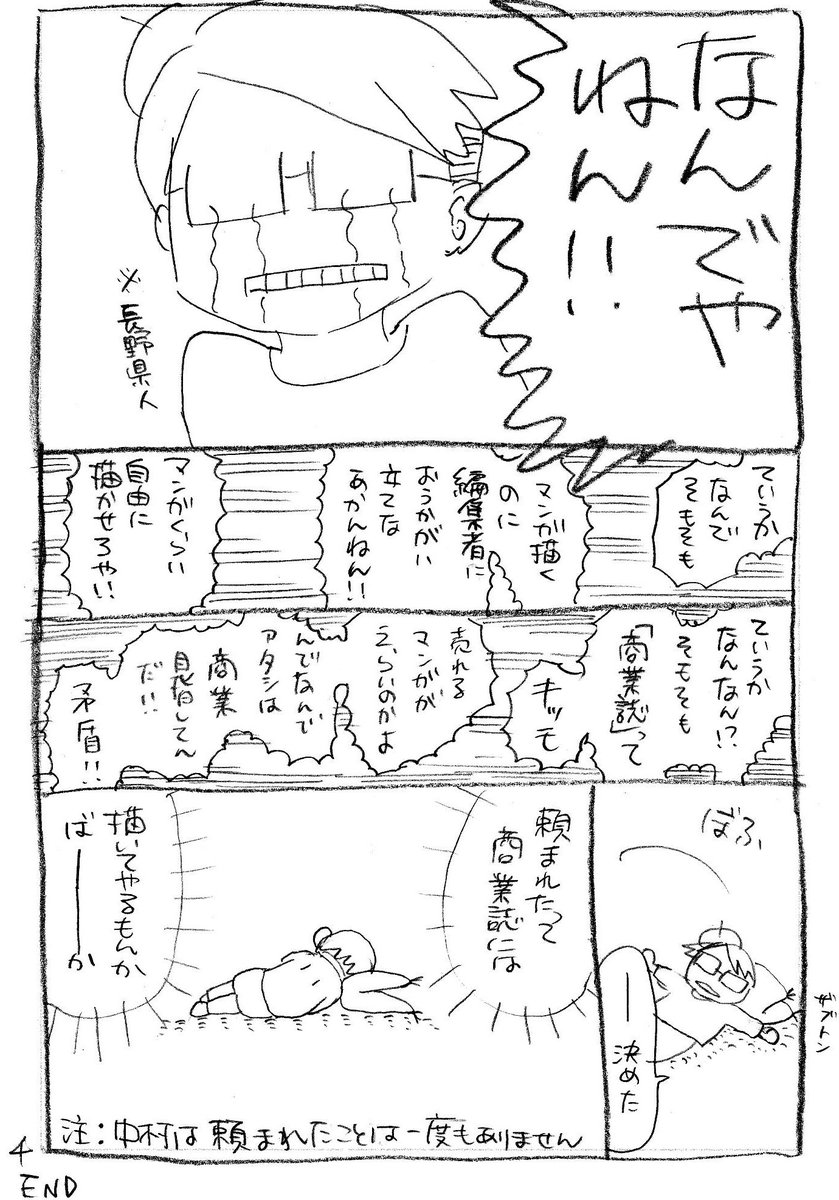 なんでや
ねん!!
※長野県人
ていうか
なんで
そもそも
マンガ描く
のに
編集者に
おうかがい
立てな
あかんねん!!
マンガくらい
自由に
描かせろや!!
ていうか
なんなん!?
そもそも
「商業誌」って
キッモ
売れる
マンガが
えらいのかよ
んでなんで
アタシは
商業
目指してん
だ!!
矛盾!!
ばふ
ザブトン
—決めた
頼まれたって
商業誌には
描いてやるもんか
ば——か
注:中村は頼まれたことは一度もありません
4
END